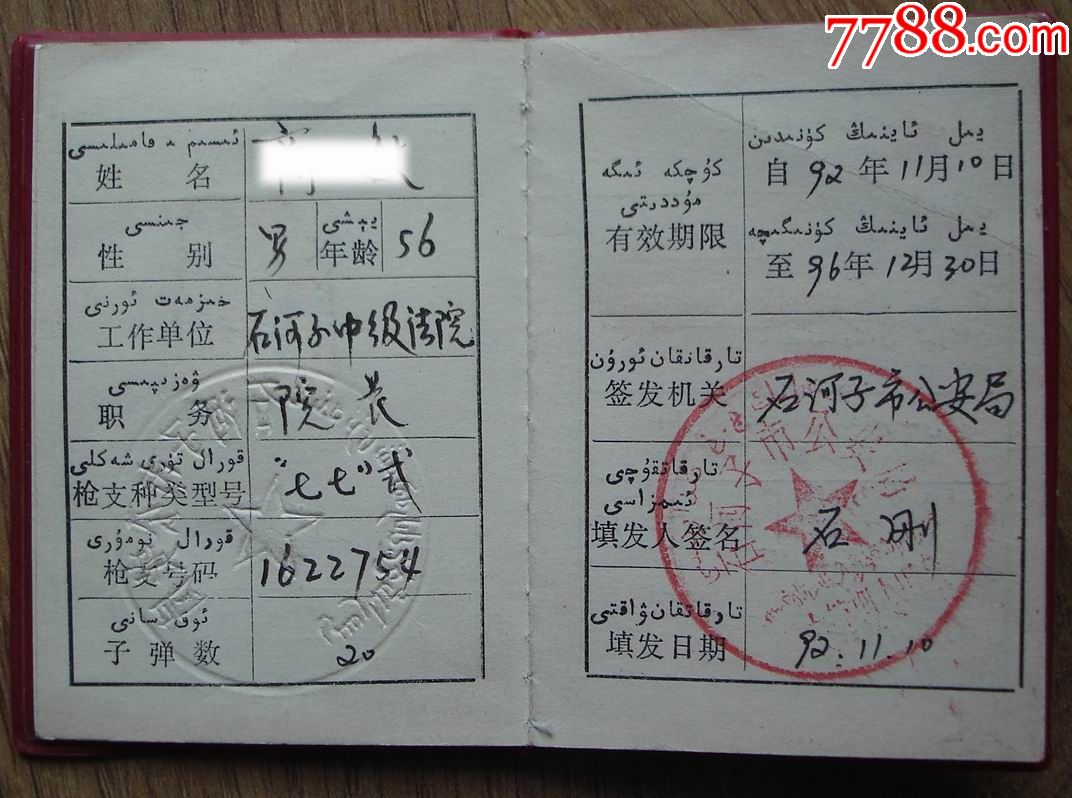 7788.com
ئىسىم ۋە فامىلىسى
姓 名
جىنسى
يېشى
性 别 男 年龄 56
خىزمەت ئورنى
工作单位 石河子中级法院
ۋەزىپىسى
职 务 院长
قورال تۈرى شەكلى
枪支种类型号 "七七"式
قورال نومۇرى
枪支号码 1622754
ئوق سانى
子弹数 20
كۈچكە ئىگە
مۇددىتى
有效期限
يىل ئاينىڭ كۈنىدىن
自 92 年 11月10日
يىل ئاينىڭ كۈنىگىچە
至 96年 12月30日
تارقاتقان ئورۇن
签发机关 石河子市公安局
تارقاتقۇچى
ئىمزاسى
填发人签名 石刚
تارقاتقان ۋاقتى
填发日期 92.11.10